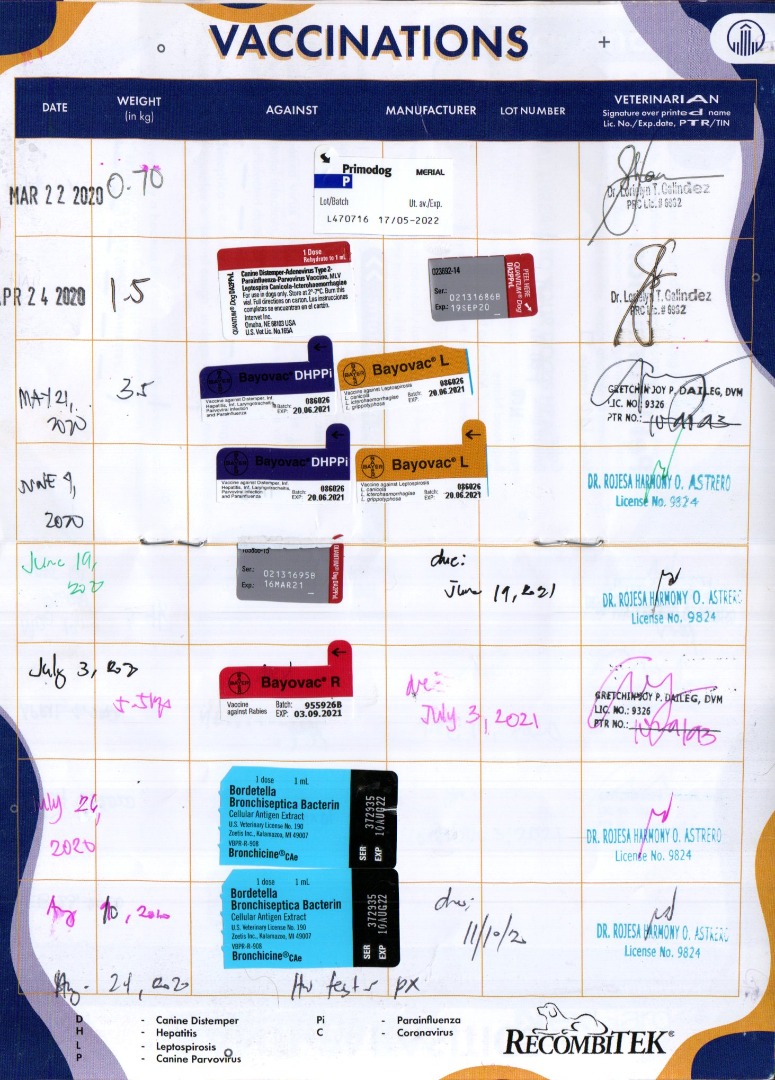 VACCINATIONS
DATE
WEIGHT
(in kg)
AGAINST
MANUFACTURER
LOT NUMBER
VETERINARIAN
Signature over printed name
Lic. No./Exp.date, PTR/TIN
MAR 22 2020
0.70
Primodog
MERIAL
P
Lot/Batch
Ut. av./Exp.
L470716 17/05-2022
Dr. Lorielyn T. Galindez
PRC Lic.# 9832
PR 24 2020
1.5
1 Dose
Rehydrate to 1 mL
QUANTUM® Dog DA2PPvL
Canine Distemper-Adenovirus Type 2-
Parainfluenza-Parvovirus Vaccine, MLV
Leptospira Canicola-Icterohaemorrhagiae
For use in dogs only. Store at 2°-7°C. Burn this
vial. Full directions on carton. Las instrucciones
completas se encuentran en el cartón.
Intervet Inc.
Omaha, NE 68103 USA
U.S. Vet Lic. No.165A
023692-14
Ser.: 02131686B
Exp.: 19SEP20
PEEL HERE
QUANTUM® Dog
DA2PPvL
Dr. Lorielyn T. Galindez
PRC Lic.# 9832
MAY 21,
2020
3.5
BAYER
Bayovac® DHPPi
Vaccine against Distemper, Inf.
Hepatitis, Inf. Laryngotracheitis,
Parvoviral infection
and Parainfluenza
Batch: 086026
EXP: 20.06.2021
BAYER
Bayovac® L
Vaccine against Leptospirosis
L. canicola
L. icterohaemorrhagiae
L. grippotyphosa
Batch: 086026
EXP: 20.06.2021
GRETCHIN JOY P. DAILEG, DVM
LIC. NO.: 9326
PTR NO.:
JUNE 4,
2020
BAYER
Bayovac® DHPPi
Vaccine against Distemper, Inf.
Hepatitis, Inf. Laryngotracheitis,
Parvoviral infection
and Parainfluenza
Batch: 086026
EXP: 20.06.2021
BAYER
Bayovac® L
Vaccine against Leptospirosis
L. canicola
L. icterohaemorrhagiae
L. grippotyphosa
Batch: 086026
EXP: 20.06.2021
DR. ROJESA HARMONY O. ASTRERO
License No. 9824
June 19,
2020
Ser.: 02131695B
Exp.: 16MAR21
QUANTUM® Dog DA2PPvL
due:
June 19, 2021
DR. ROJESA HARMONY O. ASTRERO
License No. 9824
July 3, 2020
5.5kgs
BAYER
Bayovac® R
Vaccine
against Rabies
Batch: 955926B
EXP: 03.09.2021
due:
July 3, 2021
GRETCHIN JOY P. DAILEG, DVM
LIC. NO.: 9326
PTR NO.:
July 26,
2020
1 dose 1 mL
Bordetella
Bronchiseptica Bacterin
Cellular Antigen Extract
U.S. Veterinary License No. 190
Zoetis Inc., Kalamazoo, MI 49007
VBPR-R-908
Bronchicine® CAe
SER 372935
EXP 10AUG22
DR. ROJESA HARMONY O. ASTRERO
License No. 9824
Aug 10, 2020
1 dose 1 mL
Bordetella
Bronchiseptica Bacterin
Cellular Antigen Extract
U.S. Veterinary License No. 190
Zoetis Inc., Kalamazoo, MI 49007
VBPR-R-908
Bronchicine® CAe
SER 372935
EXP 10AUG22
due:
11/10/2
DR. ROJESA HARMONY O. ASTRERO
License No. 9824
Aug. 24, 2020
px
D - Canine Distemper
H - Hepatitis
L - Leptospirosis
P - Canine Parvovirus
Pi - Parainfluenza
C - Coronavirus
RECOMBITEK®